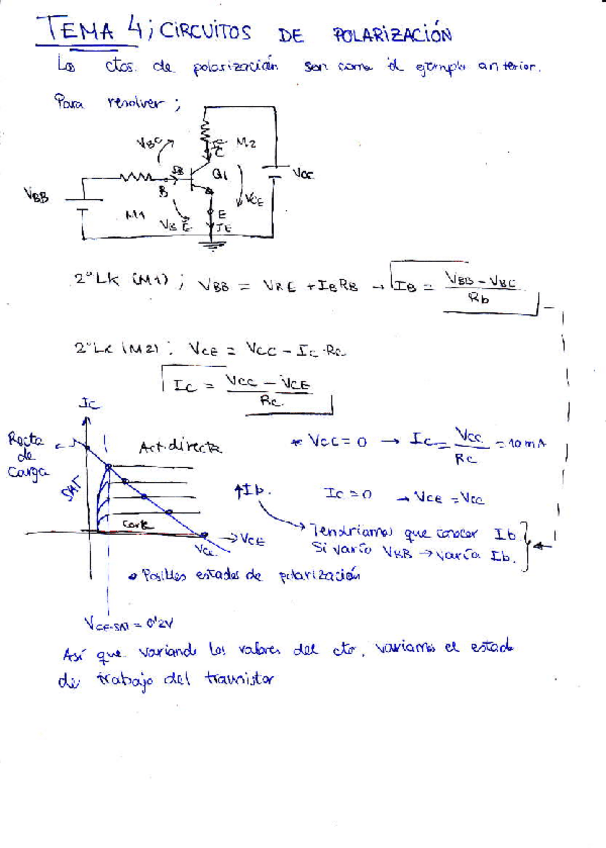 TEMA 4; CIRCUITOS DE POLARIZACIÓN
Los ctos. de polarización son como el ejemplo anterior.
Para resolver;
VBC
IC
C
M2
VCC
IB
B
Q1
VCE
VBB
M1
VBE
E
IE
2ª LK (M1); VBB = VBE + IB RB → IB = VBB - VBE / Rb
2ª LK (M2); VCE = VCC - IC · RC
IC = VCC - VCE / RC
IC
Recta de carga
SAT
Act. directa
Corte
VCC
→ VCE
* VCC = 0 → IC = VCC / RC = 10 mA
↑Ib.
IC = 0 → VCE = VCC
Tendríamos que conocer Ib
Si varío VBB → varía Ib.
• Posibles estados de polarización
VCE-SAT = 0'2V
Así que variando los valores del cto, variamos el estado
de trabajo del transistor